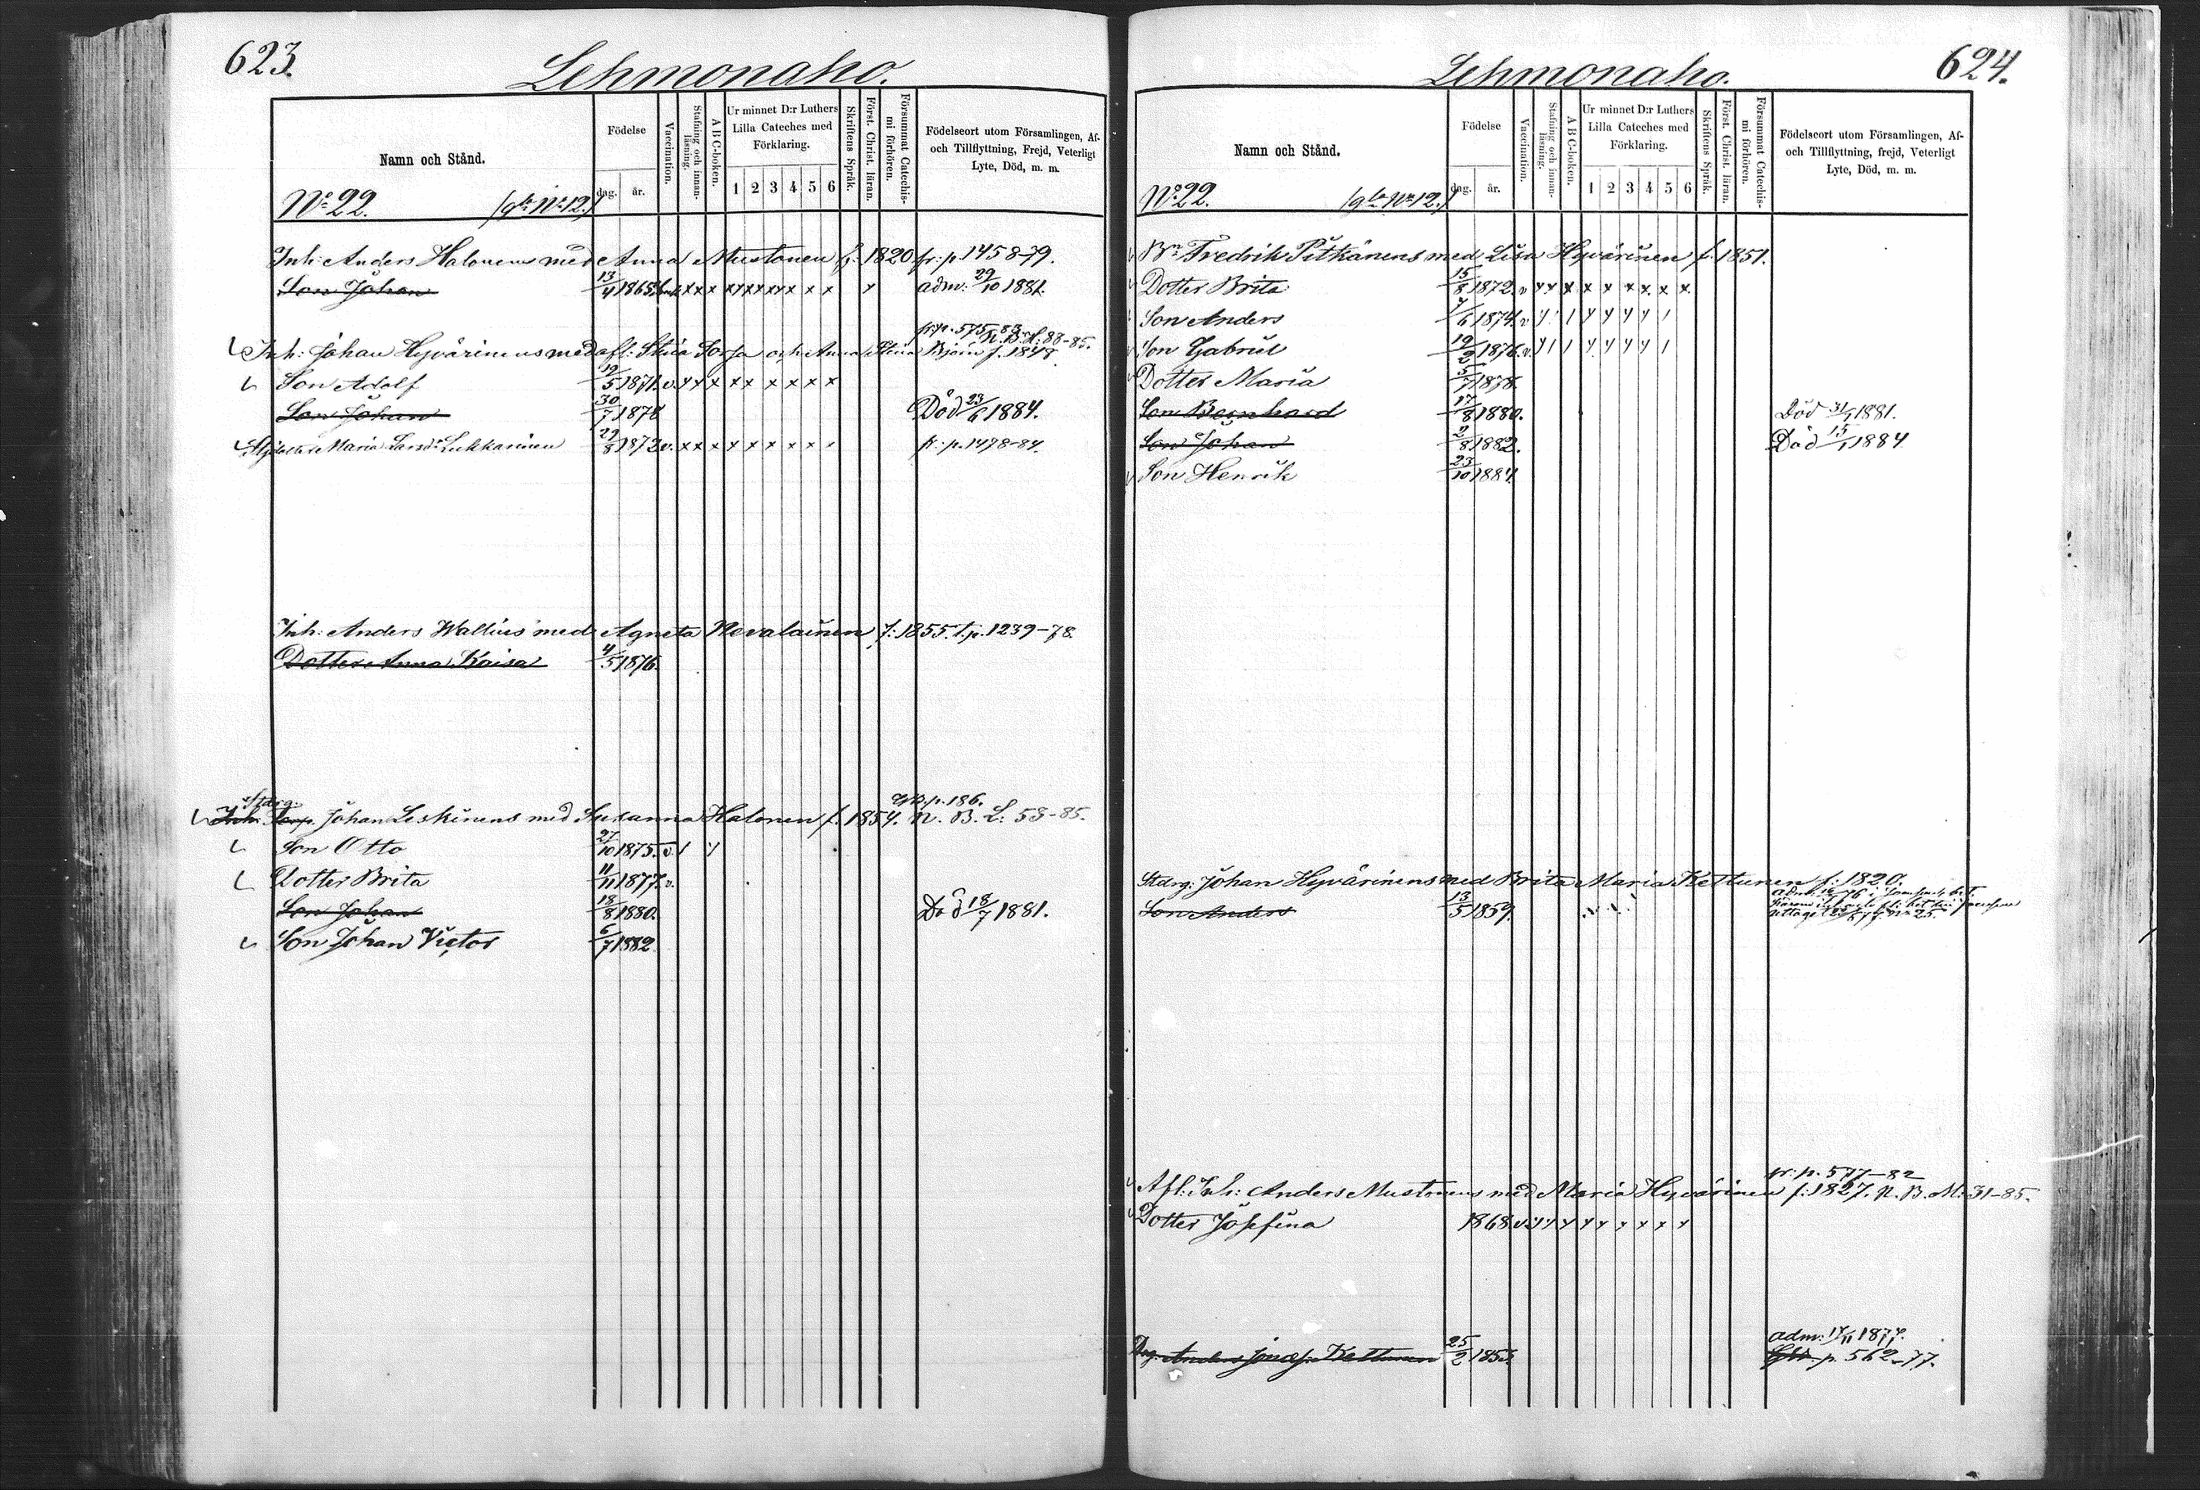 623.
Lehmonaho.
Namn och Stånd.
Födelse
dag. år.
Vaccination.
Stafning och innanläsning.
A B C-boken.
Ur minnet D:r Luthers Lilla Cateches med Förklaring.
1 2 3 4 5 6
Skriftens Språk.
Först. Christ. läran.
Försummat Catechismi förhören.
Födelseort utom Församlingen, Af- och Tillflyttning, Frejd, Veterligt Lyte, Död, m. m.
No 22. No 12.)
Inh: Anders Halonens med Anna Mustonen f. 1820 fr. p. 1458-79.
Son Johan 13/4 1865 x x x x x x x x x x x adm. 29/10 1881.
fr. p. 575-83
Inh: Johan Hyvärinens med afl: Stina Sorsa och Anna Stina Björn f. 1848 N. B. H. 88-85.
Son Adolf 19/5 1871. v. x x x x x x x x x
Son Johan 30/7 1878 Död 23/6 1884.
Maria Larsdr Lukkarinen 29/8 1872 v. x x x x x x x x x fr. p. 1478-84.
Inh: Anders Wallius med Agneta Nevalainen f: 1855. t. p. 1239-78.
Dotter Anna Kaisa 4/5 1876.
Stdrg: p. 186.
Inh: Johan Leskinens med Susanna Halonen f. 1854. N. B. L: 53-85.
Son Otto 27/10 1875. v. 1
Dotter Brita 11/11 1877. v.
Son Johan 18/8 1880. Död 18/7 1881.
Son Johan Victor 6/7 1882.
624.
Lehmonaho.
Namn och Stånd.
Födelse
dag. år.
Vaccination.
Stafning och innanläsning.
A B C-boken.
Ur minnet D:r Luthers Lilla Cateches med Förklaring.
1 2 3 4 5 6
Skriftens Språk.
Först. Christ. läran.
Försummat Catechismi förhören.
Födelseort utom Församlingen, Af- och Tillflyttning, frejd, Veterligt Lyte, Död, m. m.
No 22. No 12.)
Bn Fredrik Pitkänens med Lisa Hyvärinen f. 1851.
Dotter Brita 15/8 1872. v x x x x x x x x x
Son Anders 7/6 1874. v
Son Gabriel 19/2 1876. v.
Dotter Maria 5/7 1878.
Son Bernhard 17/8 1880. Död 31/1 1881.
Son Johan 2/8 1882. Död 15/1 1884
Son Henrik 23/10 1884
Stdrg: Johan Hyvärinens med Brita Maria Kettunen f: 1820.
Son Anders 13/5 1859.
fr. p. 517-82
Afl: Inh: Anders Mustonens med Maria Hyvärinen f: 1827. N. B. M. 31-85.
Dotter Josefina 1868 v.
adm: 17/11 1877.
Drg. Anders Kettunen 25/2 1855 p. 562-77.